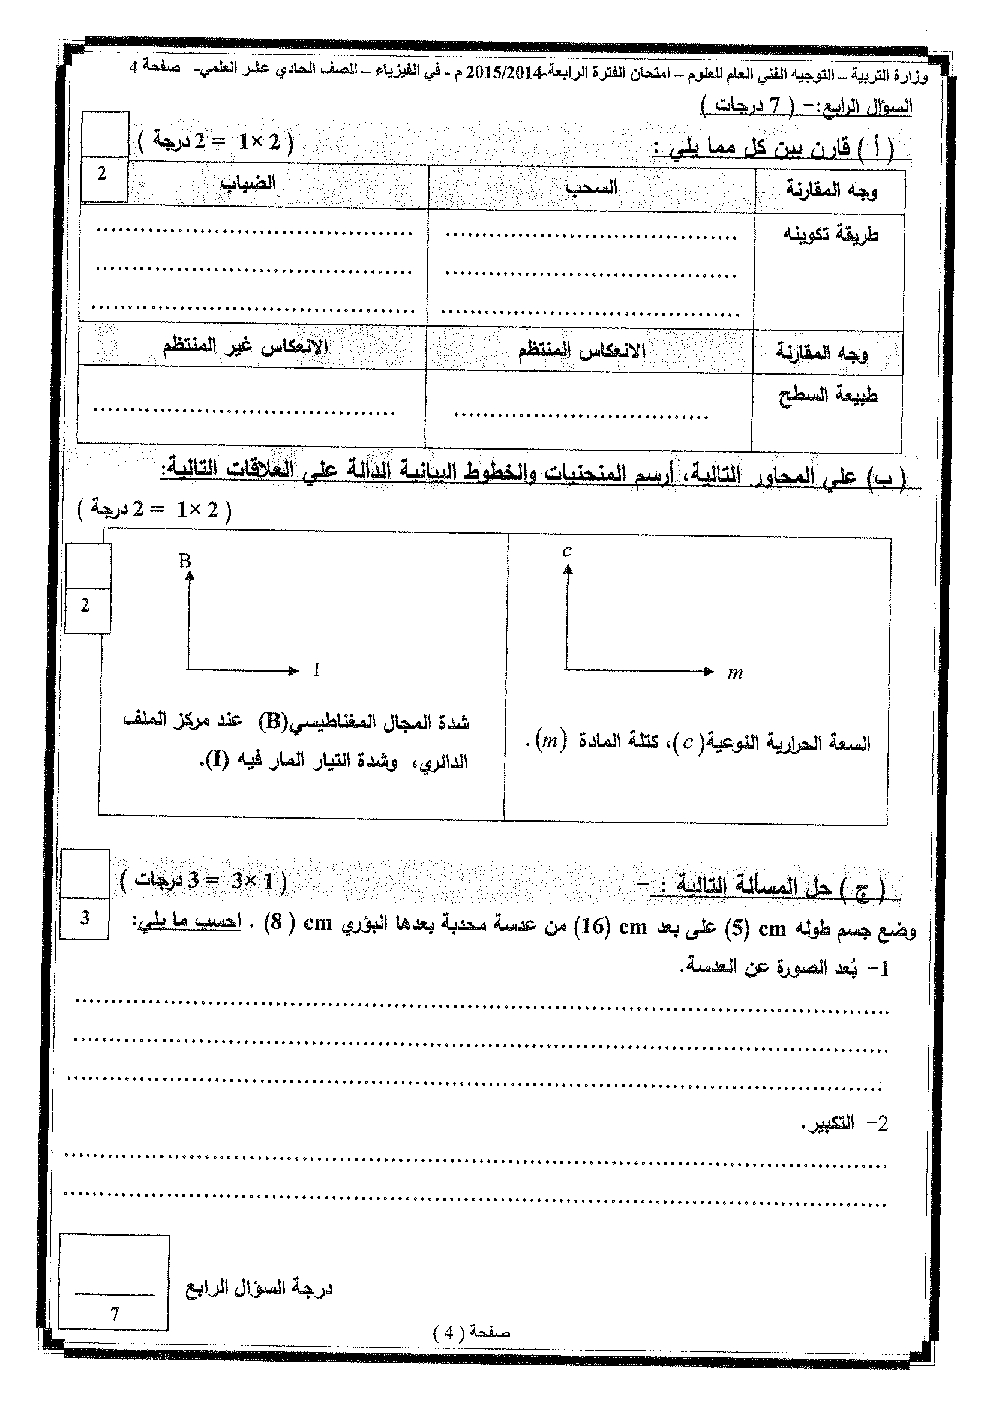 وزارة التربية – التوجيه الفني العام للعلوم – امتحان الفترة الرابعة-2015/2014 م - في الفيزياء – للصف الحادي عشر العلمي- صفحة 4
السؤال الرابع:- ( 7 درجات )
( أ ) قارن بين كل مما يلي : ( 2 ×1 = 2 درجة )
2
وجه المقارنة السحب الضباب
طريقة تكوينه ........................................ ........................................
........................................ ........................................
........................................ ........................................
وجه المقارنة الانعكاس المنتظم الانعكاس غير المنتظم
طبيعة السطح ........................................ ........................................
( ب) علي المحاور التالية، أرسم المنحنيات والخطوط البيانية الدالة علي العلاقات التالية:
( 2 ×1 = 2 درجة )
c
B
2
m
I
السعة الحرارية النوعية( c )، كتلة المادة (m).
شدة المجال المغناطيسي(B) عند مركز الملف
الدائري، وشدة التيار المار فيه (I).
( ج ) حل المسألة التالية : - ( 1× 3 = 3 درجات )
3
وضع جسم طوله cm (5) على بعد cm (16) من عدسة محدبة بعدها البؤري cm ( 8) . احسب ما يلي:
1- بُعد الصورة عن العدسة.
........................................
........................................
........................................
2- التكبير.
........................................
........................................
درجة السؤال الرابع
7
صفحة ( 4 )